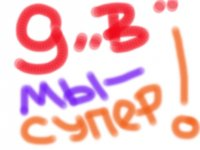 9 „В"
МЫ-
СУПЕР!